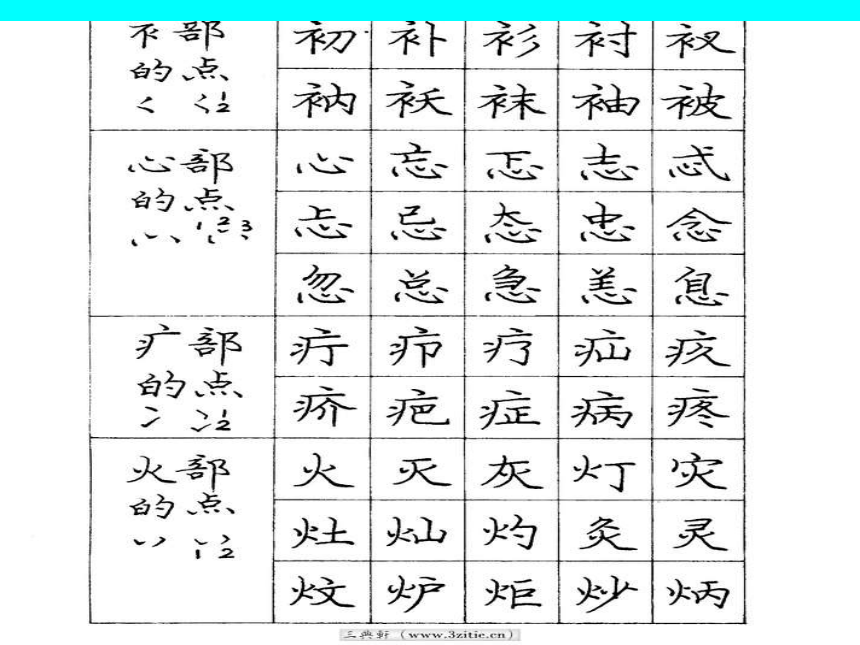 衤部 初 补 衫 衬 衩
的点 衲 袄 袜 袖 被
心部 心 忘 忑 志 忒
的点 忐 忌 态 忠 念
1 2 3
忽 总 急 恙 息
疒部 疔 疖 疗 疝 疫
的点 疥 疤 症 病 疼
1 2
火部 火 灭 灰 灯 灾
的点 灶 灿 灼 灸 灵
1 2
炆 炉 炬 炒 炳
三典轩（www.3zitie.cn）